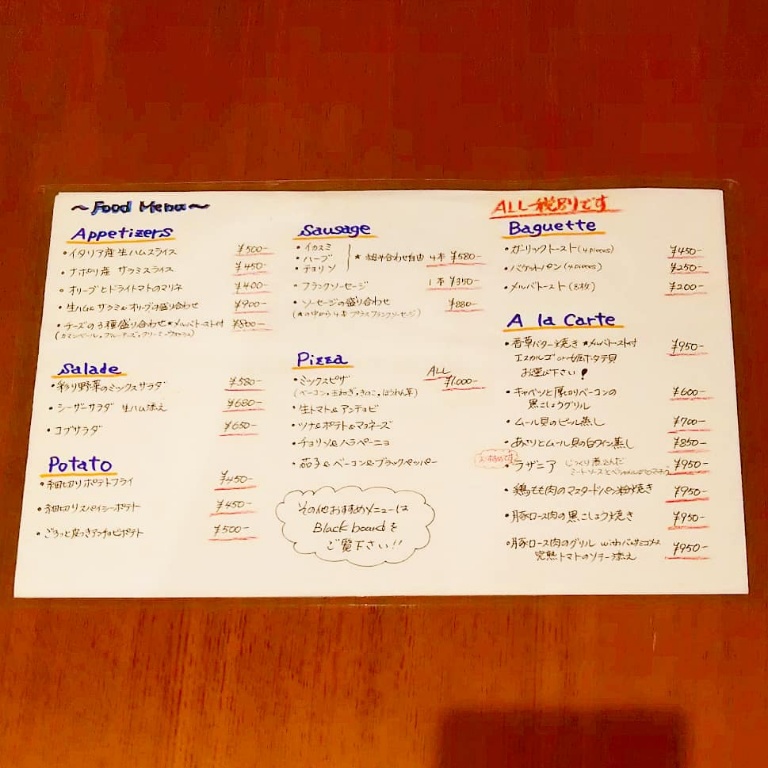 〜Food Menu〜
ALL 税別です
Appetizers
・イタリア産 生ハムスライス ¥500-
・ナポリ産 サラミスライス ¥450-
・オリーブとドライトマトのマリネ ¥400-
・生ハム サラミ&オリーブの盛り合わせ ¥900-
・チーズの3種盛り合わせ★メルバトースト付 ¥800-
Salade
・彩り野菜のミックスサラダ ¥580-
・シーザーサラダ 生ハム添え ¥680-
・コブサラダ ¥650-
Potato
・細切りポテトフライ ¥450-
・細切りスパイシーポテト ¥450-
・ごろっと皮つきアンチョビポテト ¥500-
Sausage
・イカスミ
・ハーブ ★組み合わせ自由 4本 ¥580-
・チョリソ
・フランクソーセージ 1本 ¥350-
・ソーセージの盛り合わせ ¥880-
(★の中から4本プラスフランクソーセージ)
Pizza
ALL
・ミックスピザ ¥1,000-
(ベーコン,玉ねぎ,きのこ,ほうれん草)
・生トマト&アンチョビ
・ツナ&ポテト&マヨネーズ
・チョリソ&ハラペーニョ
・茄子&ベーコン&ブラックペッパー
その他おすすめメニューは
Black boardを
ご覧下さい!!
Baguette
・ガーリックトースト(4pieces) ¥450-
・バケットパン(4pieces) ¥250-
・メルバトースト(8枚) ¥200-
A la Carte
・香草バター焼き ★メルバトースト付 ¥950-
エスカルゴ or ホタテ貝
お選び下さい!
・キャベツと厚切りベーコンの
黒こしょうグリル ¥600-
・ムール貝のビール蒸し ¥700-
・あさりとムール貝の白ワイン蒸し ¥850-
・ラザニア じっくり煮込んだ ¥950-
・鶏もも肉のマスタードパン粉焼き ¥950-
・豚ロース肉の黒こしょう焼き ¥950-
・豚ロース肉のグリル with バルサミコソース ¥950-
完熟トマトのソテー添え